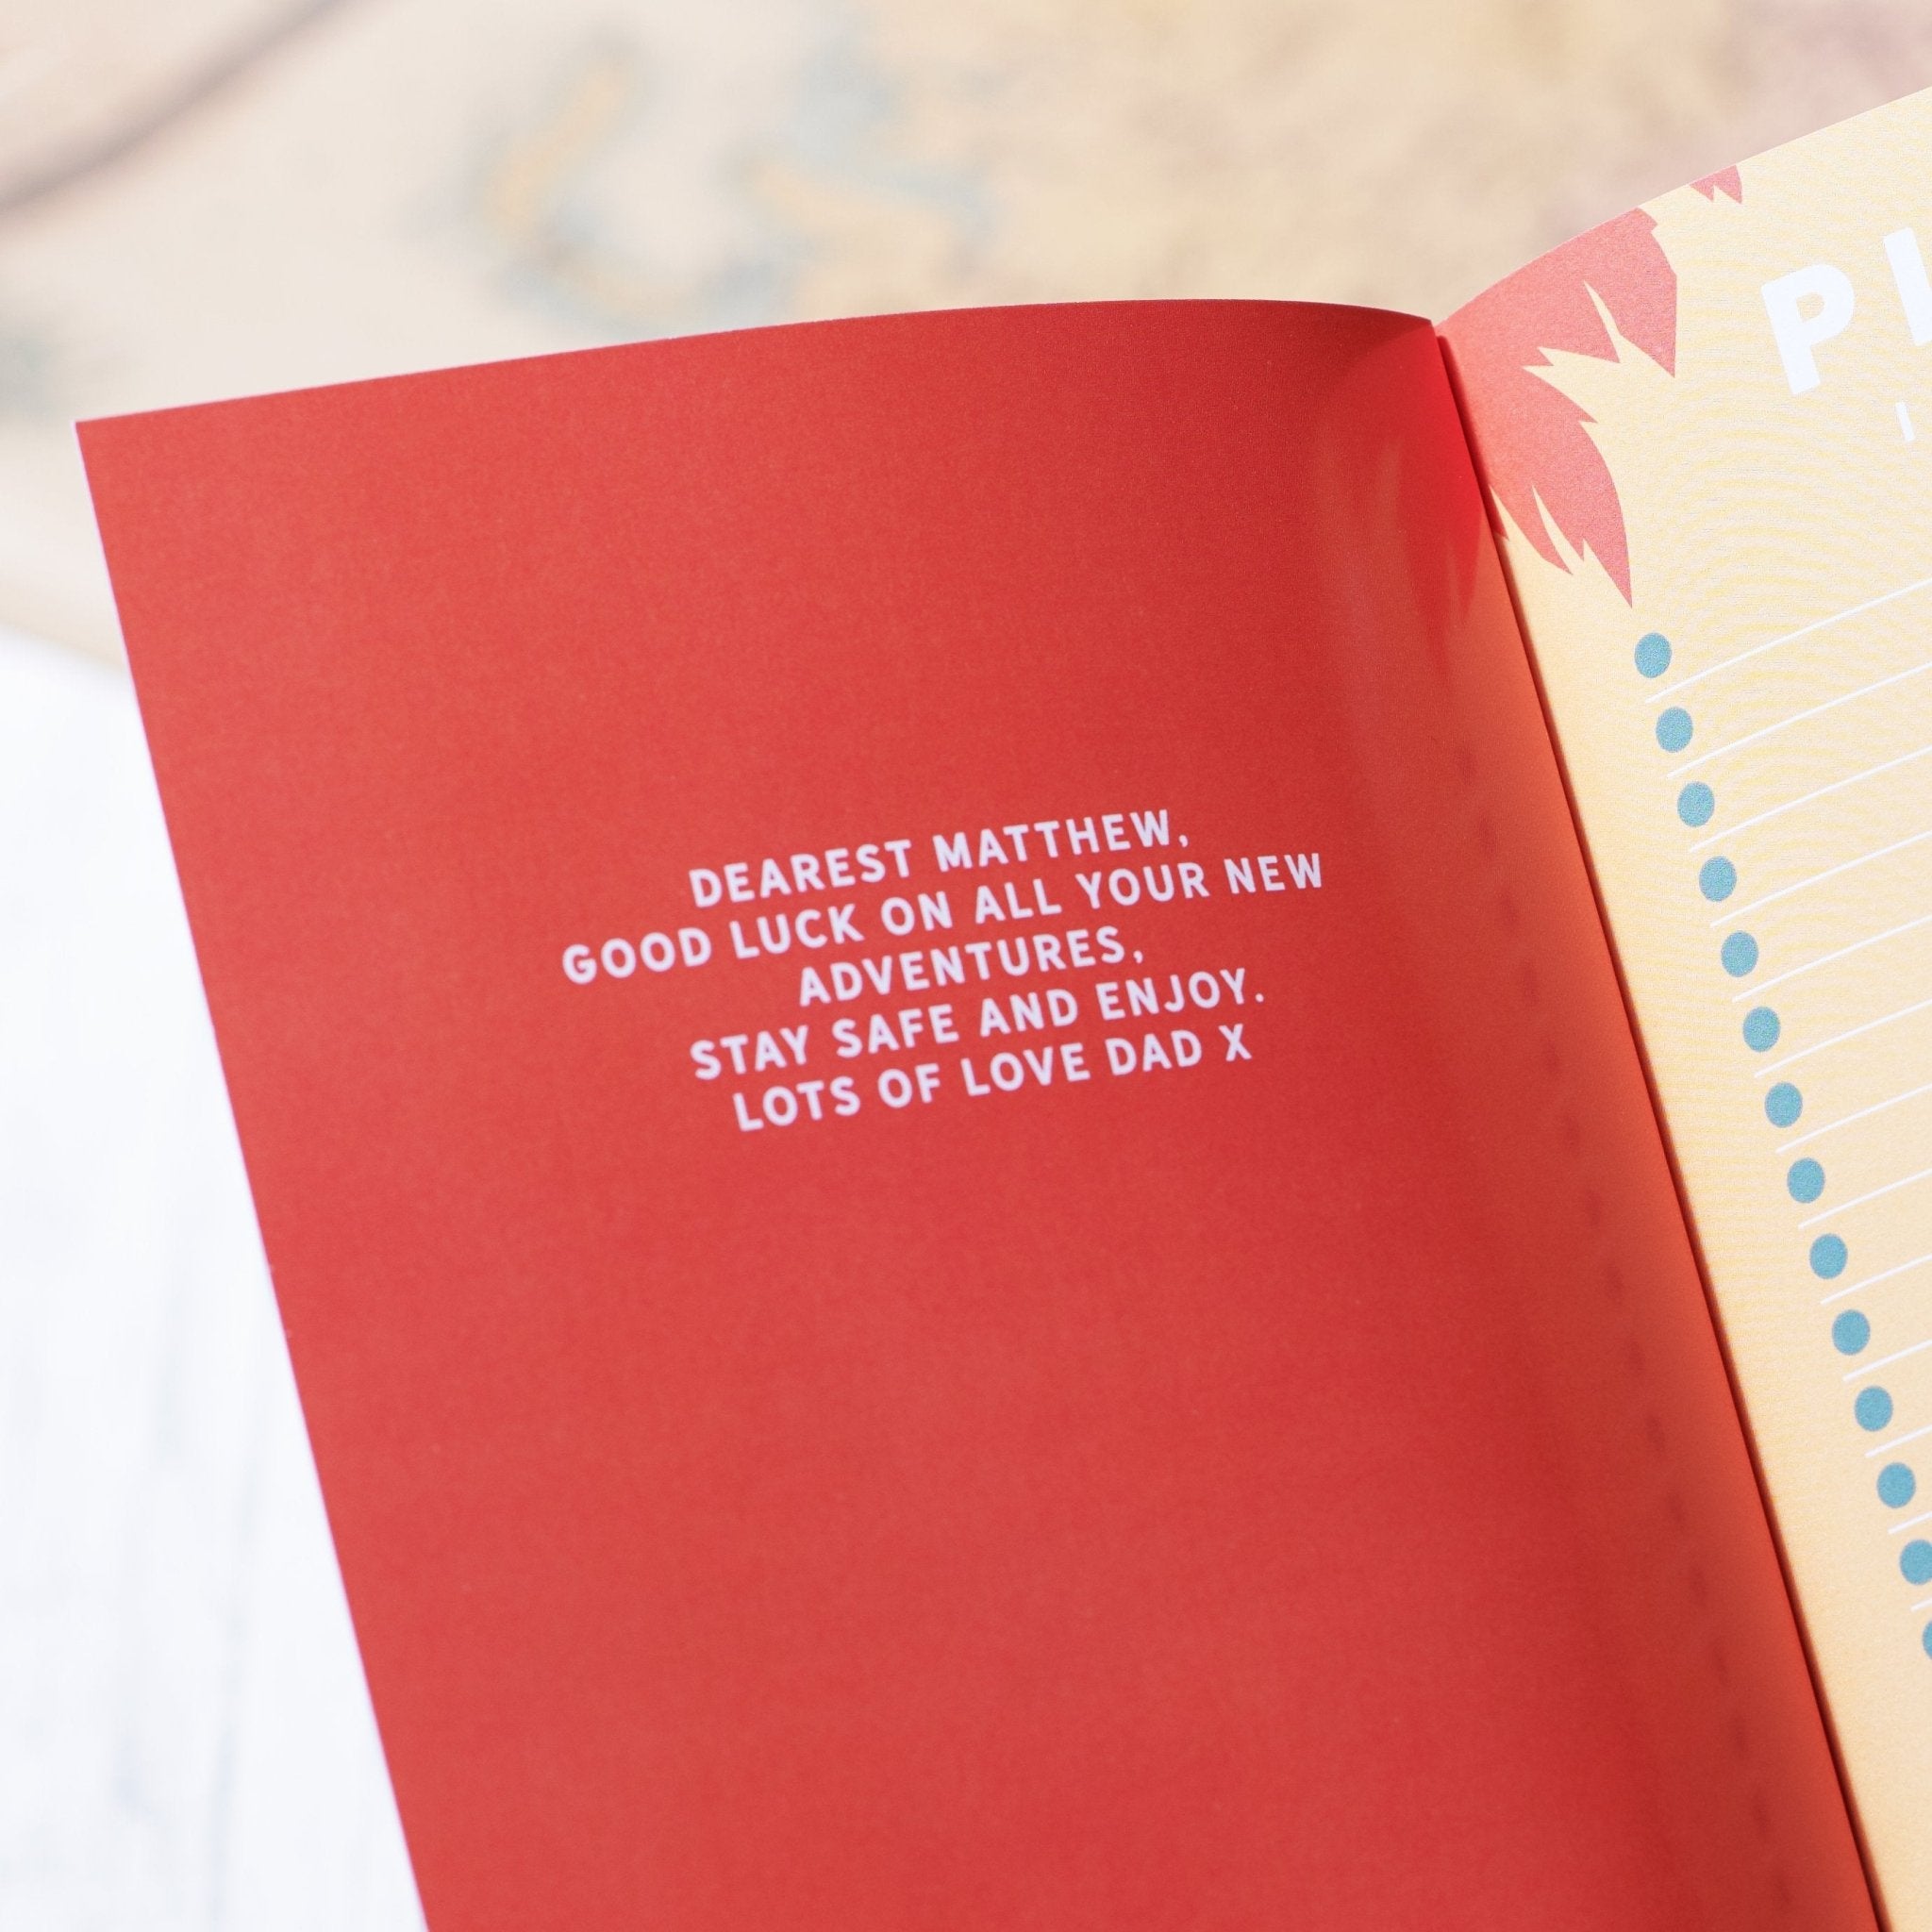 DEAREST MATTHEW,
GOOD LUCK ON ALL YOUR NEW
ADVENTURES,
STAY SAFE AND ENJOY.
LOTS OF LOVE DAD X